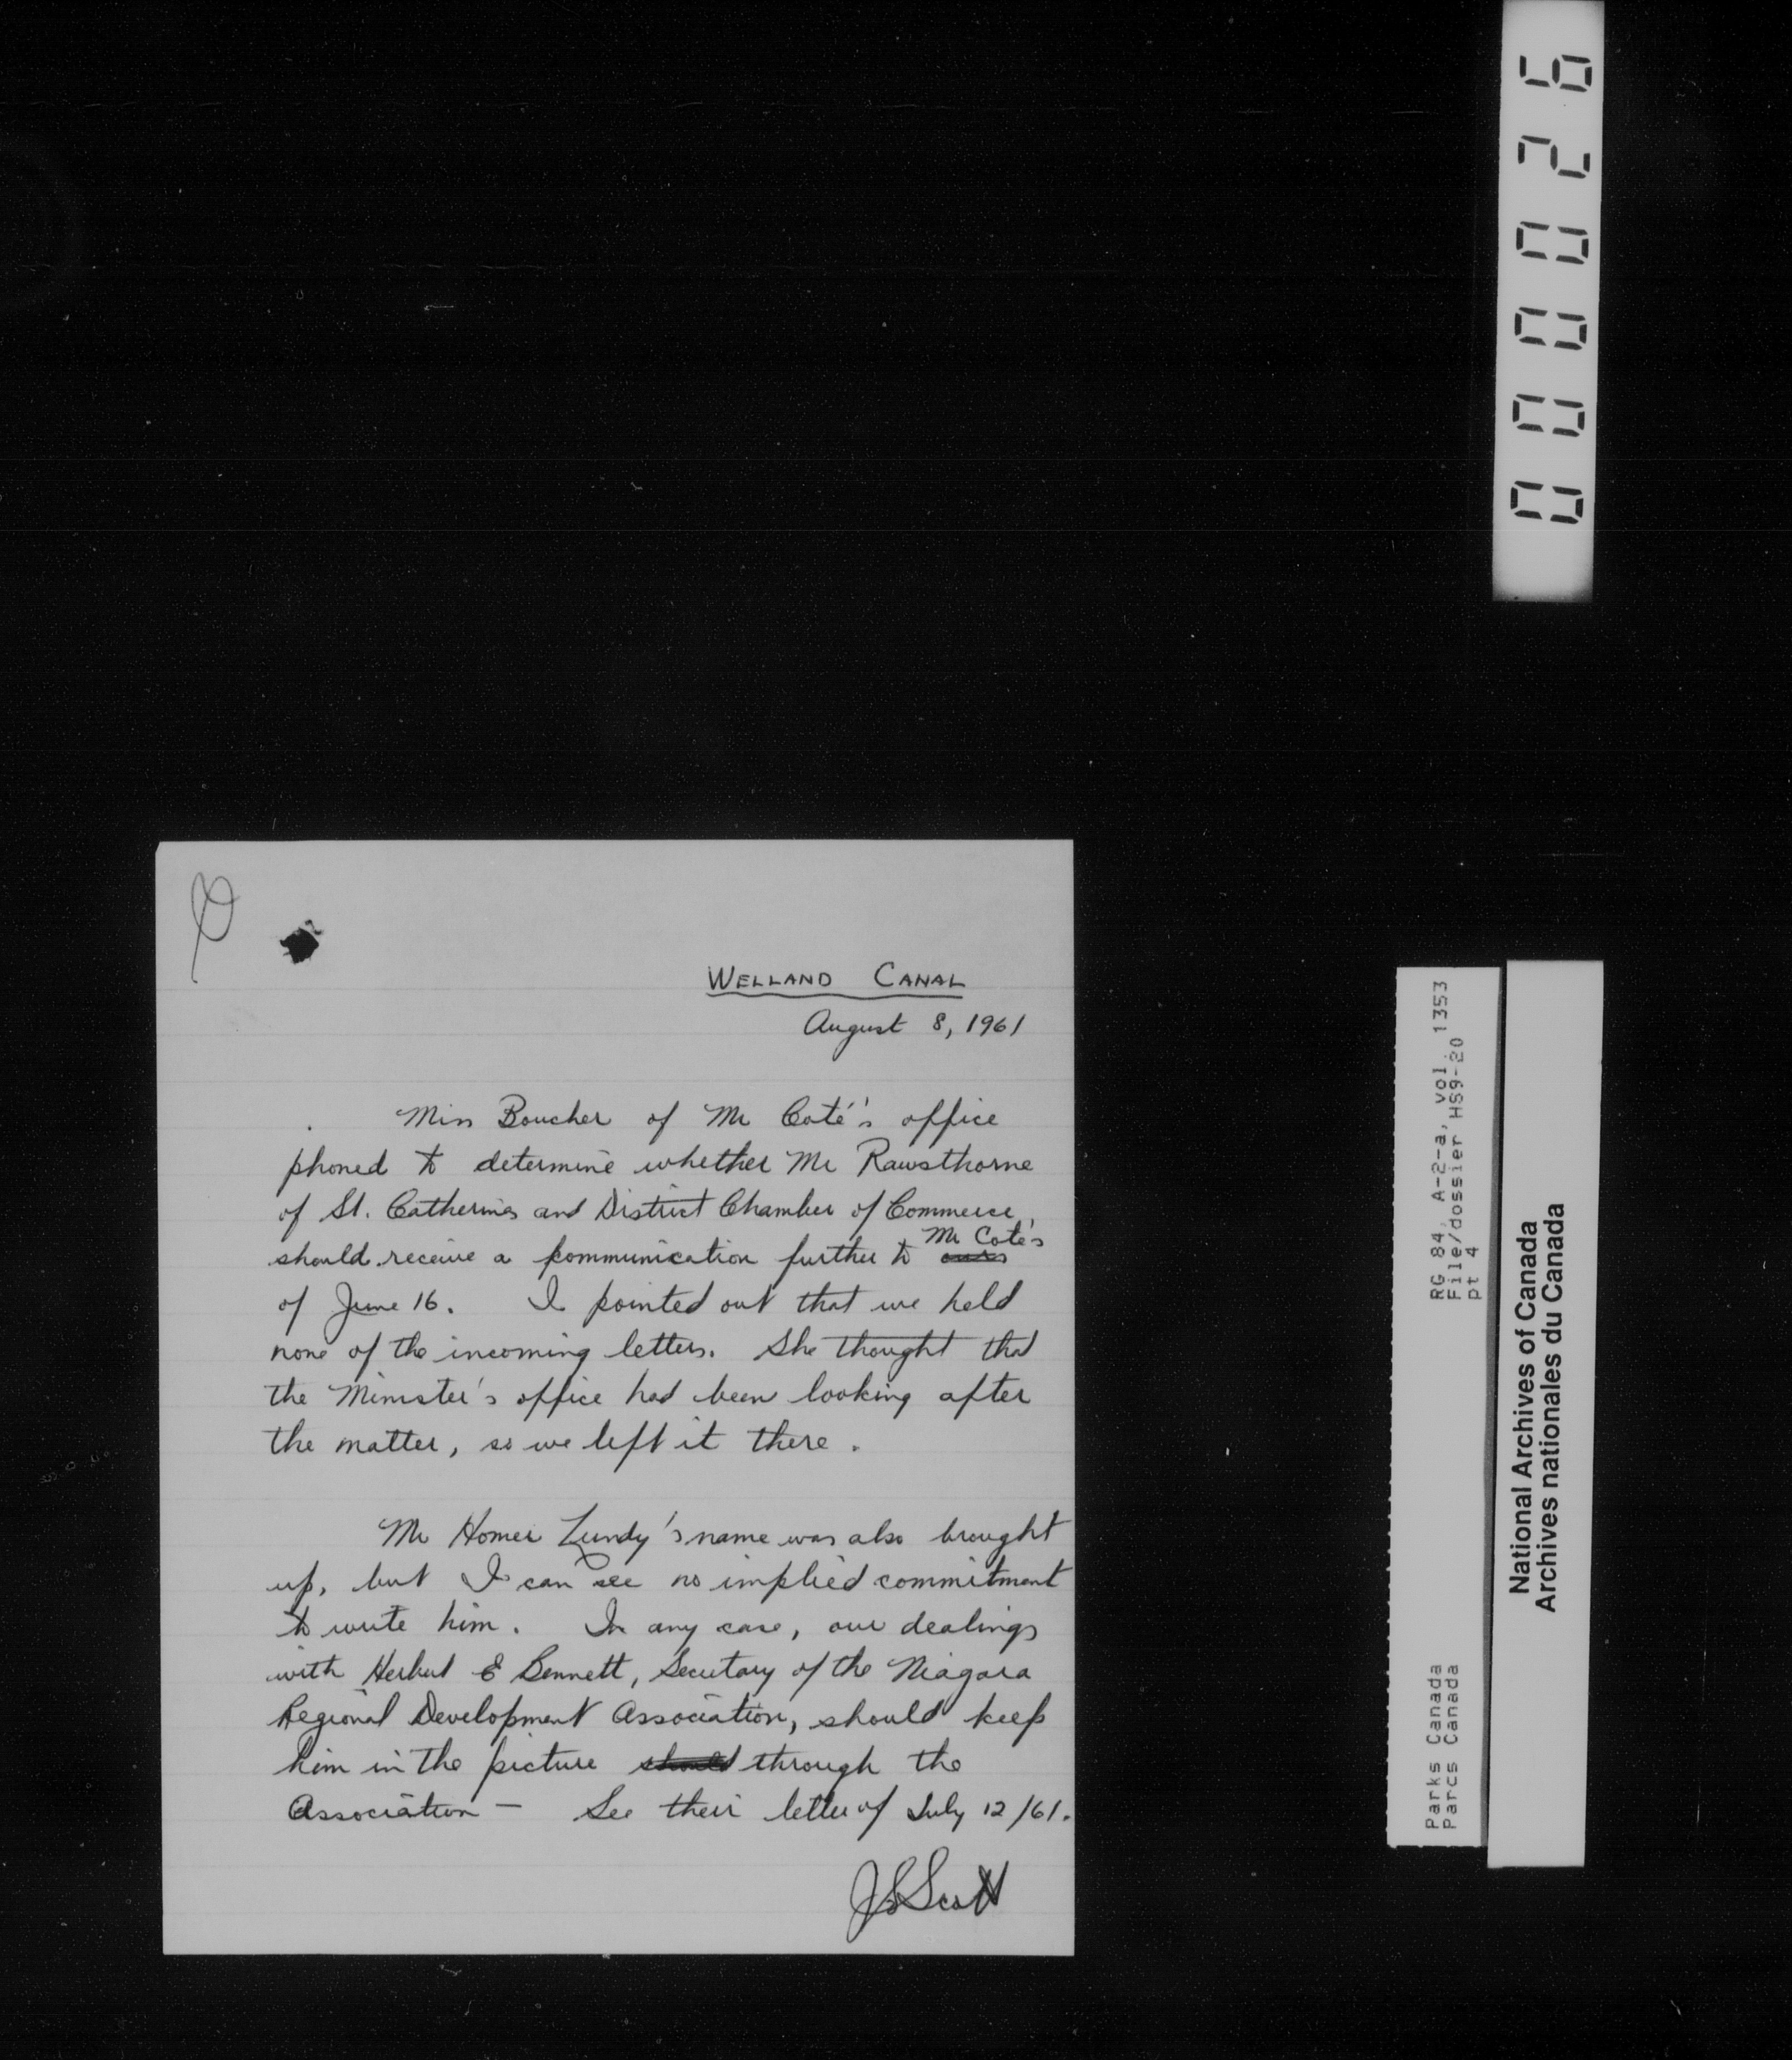 000026
WELLAND CANAL
August 8, 1961
Miss Boucher of Mr Coté's office
phoned to determine whether Mr Rawsthorne
of St. Catherines and District Chamber of Commerce,
should receive a communication further to ours Mr Coté's
of June 16. I pointed out that we held
none of the incoming letters. She thought that
the Minister's office had been looking after
the matter, so we left it there.
Mr Homer Lundy's name was also brought
up, but I can see no implied commitment
to write him. In any case, our dealings
with Herbert E Bennett, Secretary of the Niagara
Regional Development Association, should keep
him in the picture should through the
Association – See their letter of July 12/61.
JSScott
RG 84, A-2-a, vol. 1353
File/dossier HS9-20
pt 4
Parks Canada
Parcs Canada
National Archives of Canada
Archives nationales du Canada